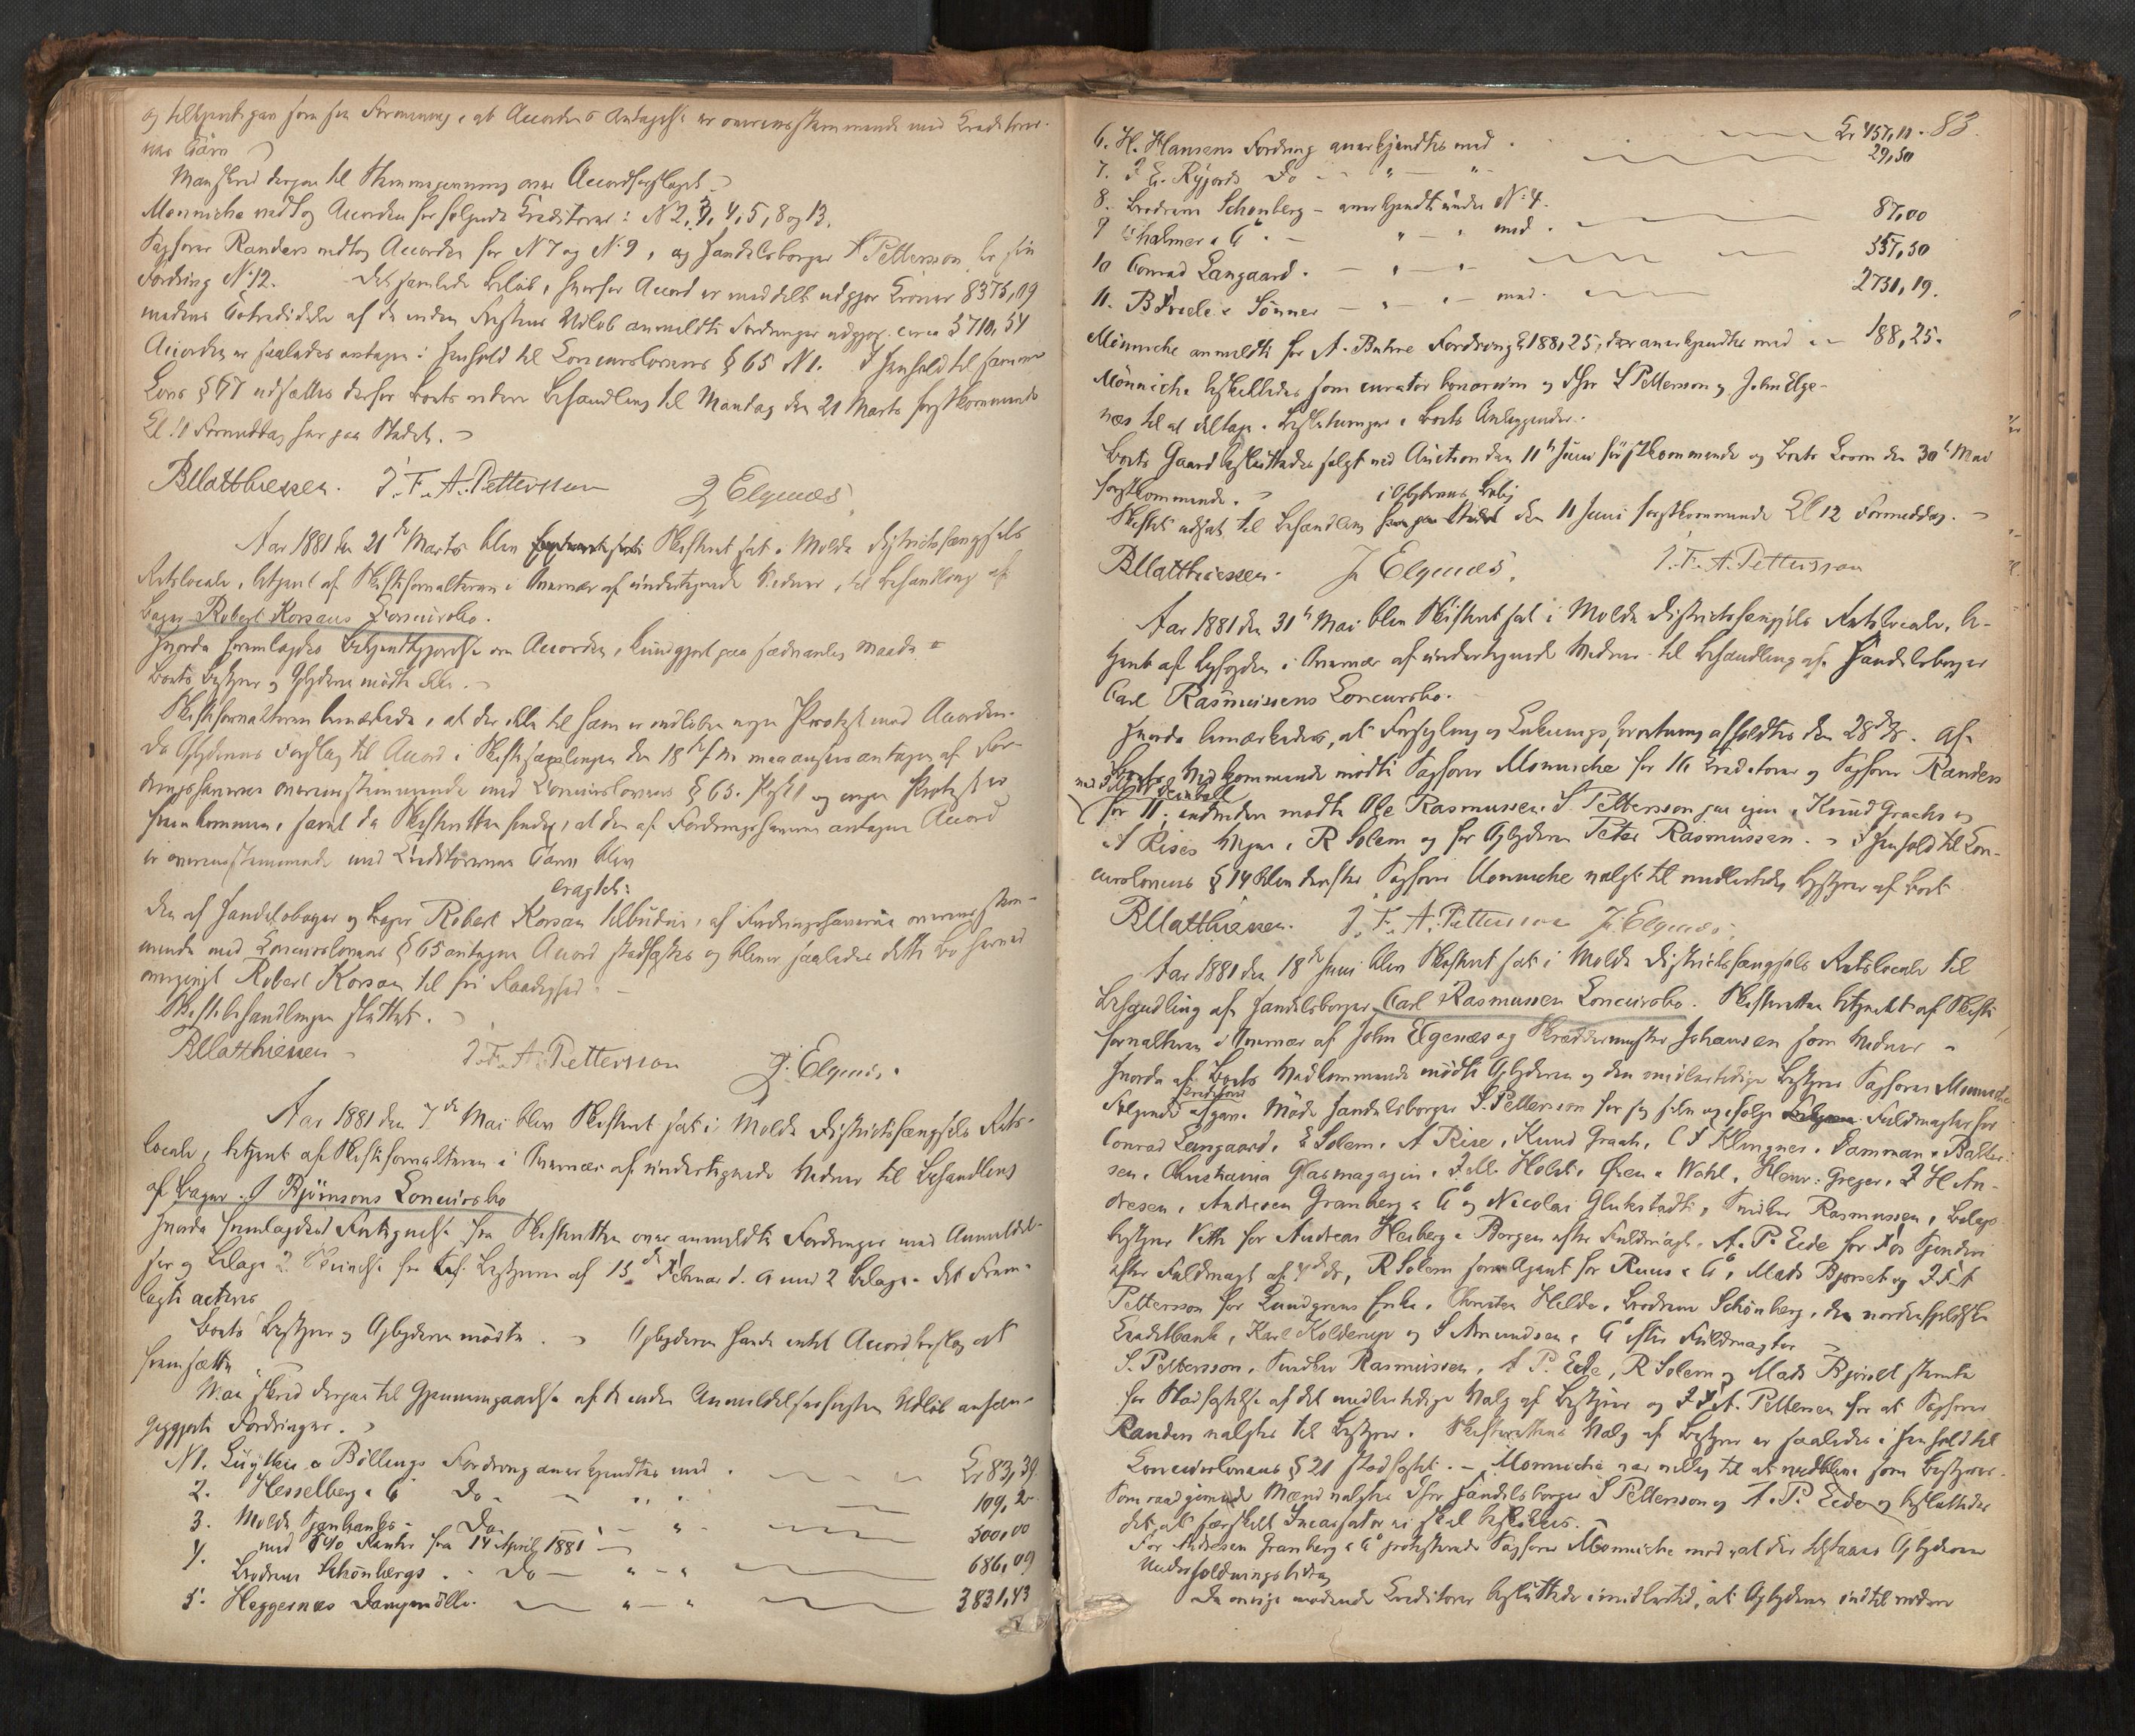 og tilkjendegav som sin Formening, at Accordens Antagelse er overensstemmende med Creditorer-
nes Tarv
Man skred derpaa til Stemmegivning over Accordforslaget.
Monniche vedtog Accorden for følgende Creditorer: N 2, 3, 4, 5, 8 og 13.
Sagfører Randers vedtog Accorden for N 7 og N 9, og Handelsborger Pettersson for sin
Fordring N 12. Det samlede Beløb, hvorfor Accord er meddelt udgjør Kroner 8375,09
medens Totalbeløbet af de inden Fristens Udløb anmeldte Fordringer udgjør circa 3710,54
Accorden er saaledes antagen i Henhold til Concurslovens § 65 N 1. I Henhold til samme
Lovs § 67 udsættes derfor Boets videre Behandling til Mandag den 21 Marts førstkommende
Kl. 11 Formiddag her paa Stedet.
BMatthiessen. J. F. A. Pettersson J. Elgenæs
Aar 1881 den 21de Marts blev Skifteret sat i Molde Districtsfængsels
Retslocale, betjent af Skifteforvalteren i Overvær af undertegnede Vidner, til Behandling af
Bager Robert Korsans Concursbo.
Hvorda fremlagdes Bekjendtgjørelse om Accorden, kundgjort paa sædvanlig Maade
Boets Bestyrer og Skyldneren mødte ikke.
Skifteforvalteren bemærkede, at der ikke til ham er indløben nogen Protest mod Accorden.
Da Skyldnerens Forslag til Accord i Skiftesamlingen den 18de f. M. maa ansees antagen af For-
dringshaverne overensstemmende med Concurslovens § 65. Post 1 og ingen Protest er
fremkommen, samt da Skifteretten finder, at den af Fordringshaverne antagne Accord
er overensstemmende med Creditorernes Tarv blev
eragtet:
Den af Handelsborger og Bager Robert Korsan tilbudne, af Fordringshaverne overensstem-
mende med Concurslovens § 65 antagne Accord stadfæstes og bliver saaledes dette Bo herved
overgivet Robert Korsan til fri Raadighed.
Skiftebehandlingen sluttet.
BMatthiessen J. F. A. Pettersson J. Elgenæs.
Aar 1881 den 7de Mai blev Skifteret sat i Molde Districtsfængsels Rets-
locale, betjent af Skifteforvalteren i Overvær af undertegnede Vidner til Behandling
af Bager J Bjørnsons Concursbo
Hvorda fremlagdes Fortegnelse fra Skifteretten over anmeldte Fordringer med Anmeldel-
ser og Bilage 2. Skrivelse fra Bestyreren af 15de Februar d. A med 2 Bilage. Det Frem-
lagte acteres
Boets Bestyrer og Skyldneren mødte. Skyldneren havde intet Accordforslag at
fremsætte
Man skred derpaa til Gjennemgaaelse af de inden Anmeldelsesfristens Udløb anmeldte
Fordringer.
N 1. Lüytkis & Böllings Fordring anerkjendtes med Kr 83,39
2. Hesselberg & Co Do 109,20
3. Molde Sparebanks Do 300,00
med 6 % Renter fra 14 April 1881
4. Brødrene Schönbergs Do 686,09
5. Heggernæs Dampmölle 3831,43
83.
6. H. Hansens Fordring anerkjendtes med Kr 457,11
7. J E. Ryjords Do 29,50
8. Brødrene Schönberg anerkjendt under N 4.
9 Chalmer & Co med 87,00
10 Conrad Langaard 357,50
11. Broele & Sønner med 2731,19.
Mönniche anmeldte for A. Buhre Fordring Kr 188,25, der anerkjendtes med 188,25.
Mönniche beskikkedes som curator bonorum og DHrr S Pettersson og John Elge-
næs til at deltage i Beslutninger i Boets Anliggender.
Boets Gaard besluttedes solgt ved Auction den 11te Juni førstkommende og Boets Løsøre den 30te Mai
førstkommende.
i Skyldnerens Bolig
Skiftet udsat til Behandling her paa Stedet den 11 Juni førstkommende Kl 12 Formiddag.
BMatthiessen J. Elgenæs. J. F. A. Pettersson
Aar 1881 den 31te Mai blev Skifteret sat i Molde Districtsfængsels Retslocale, be-
tjent af Byfogden i Overvær af undertegnede Vidner til Behandling af Handelsborger
Carl Rasmussens Concursbo.
Hvorda bemærkedes, at Forsegling og Lukningsforretning afholdtes den 28de ds. Af
Boets Vedkommende mødte Sagfører Monniche for 16 Creditorer og Sagfører Randers
for 11. endvidere mødte Ole Rasmussen, S. Pettersson paa egne, Knud Graahs og
A Rises Vegne, R Solem og for Skyldneren Peter Rasmussen. I Henhold til Con-
curslovens § 14 blev derefter Sagfører Monniche valgt til midlertidig Bestyrer af Boet
BMatthiessen. J. F. A. Pettersson J. Elgenæs.
Aar 1881 den 18de Juni blev Skifteret sat i Molde Districtsfængsels Retslocale til
Behandling af Handelsborger Carl Rasmussen Concursbo. Skifteretten betjent af Skifte-
forvalteren i Overvær af John Elgenæs og Skræddermester Johansen som Vidner
Hvorda af Boets Vedkommende mødte Skyldneren og den midlertidige Bestyrer Sagfører Monniche
Creditorer
Følgende gave Møde Handelsborger S. Pettersson for sig selv og ifølge Fuldmagter for
Conrad Langaard, E Solem, A Rise, Knud Graah, C J Klingner, Damman & Balter-
sen, Christiania Glasmagazin, Jell. Holst, Øien & Wahl, Henr. Greger, J H An-
dresen, Andresen Granberg & Co og Nicolai Glukstadt, Snidker Rasmussen, Belags-
bestyrer Veth for Andreas Heiberg i Bergen efter Fuldmagt, A. P. Eide for Tøs Tjendri
efter Fuldmagt af 4de ds, R Solem som Agent for Ruus & Co, Mads Bjørset og J F A
Pettersson for Lundgrens Enke, Christen Helde, Brødrene Schönberg, den nordenfjeldske
Creditbank, Karl Kolderup og S Amundsen & Co efter Fuldmagter
S. Pettersson, Snidker Rasmussen, A P. Eide, R Solem og Mads Bjørset stemte
for Stadfæstelse af det midlertidige Valg af Bestyrer og J F A. Pettersen for at Sagfører
Randers valgtes til Bestyrer. Skifterettens Valg af Bestyrer er saaledes i Henhold til
Concurslovens § 21 stadfæstet. Monniche var villig til at vedblive som Bestyrer.
Som raadgivende Mænd valgtes DHrr Handelsborger S Pettersson og A. P. Eide og besluttedes
det, at særskilt Incassator ei skal beskikkes.
For Andresen Granberg & Co protesterede Sagfører Monniche mod, at der tilstaaes Skyldneren
Underholdningsbidrag
De øvrige mødende Creditorer besluttede imidlertid, at Skyldneren indtil videre